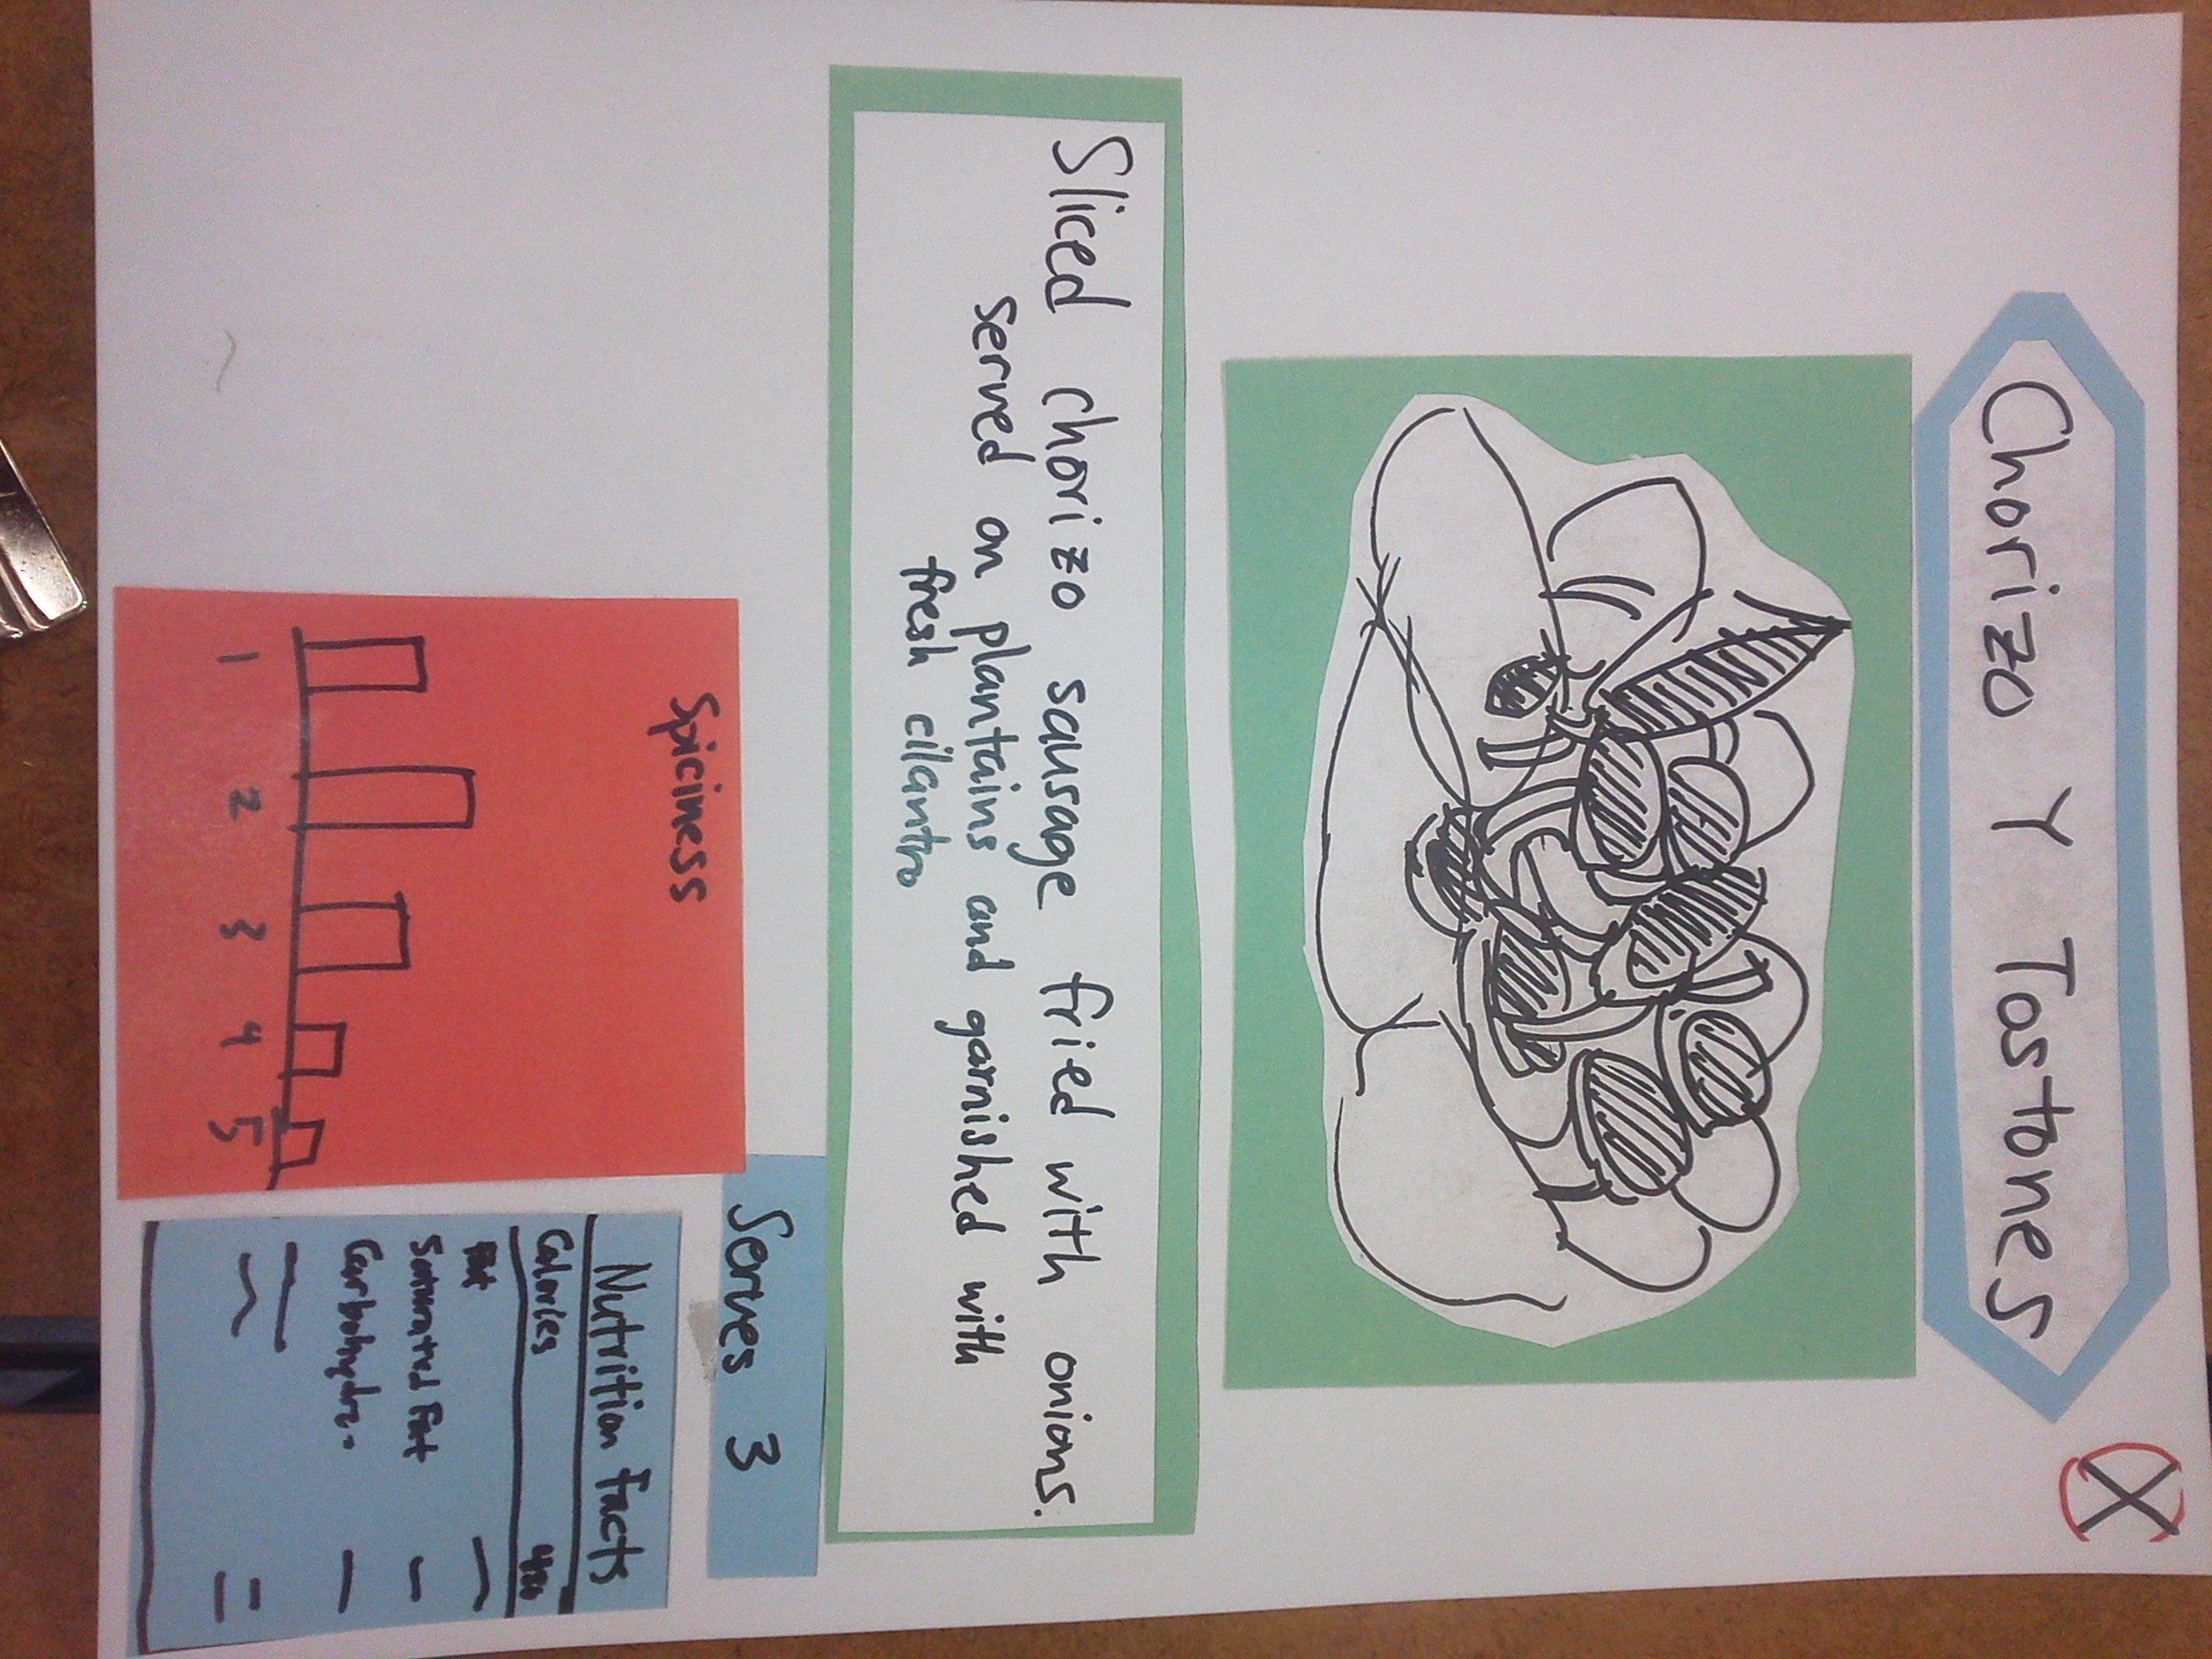 Chorizo Y Tostones
X
Sliced chorizo sausage fried with onions.
served on plantains and garnished with
fresh cilantro
Serves 3
Spiciness
1 2 3 4 5
Nutrition Facts
Calories
Fat
Saturated Fat